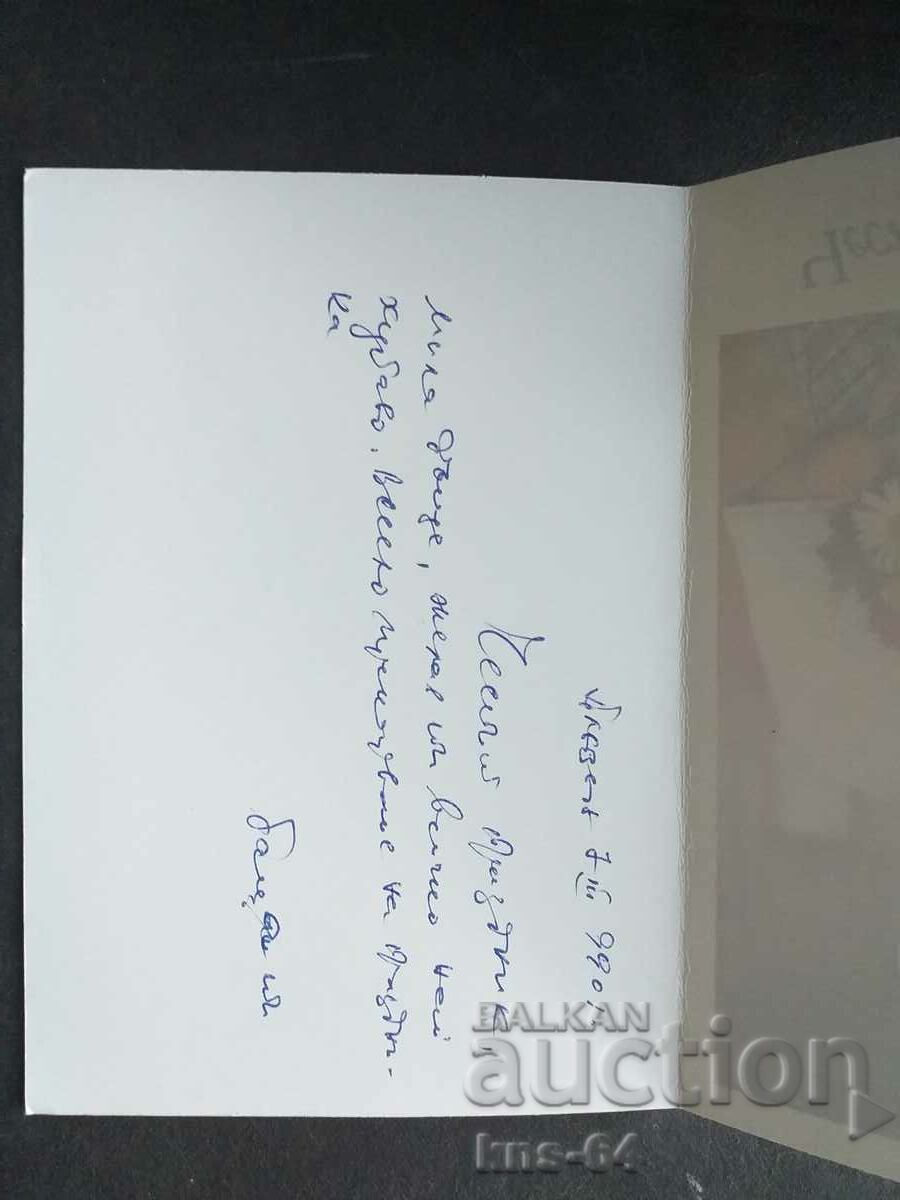 7 III 990 г.
Честит Празник,
Мила дъще, желая ти всичко най
хубаво. Весело прекарване на празни-
ка
Чест
BALKAN
auction
kns-64